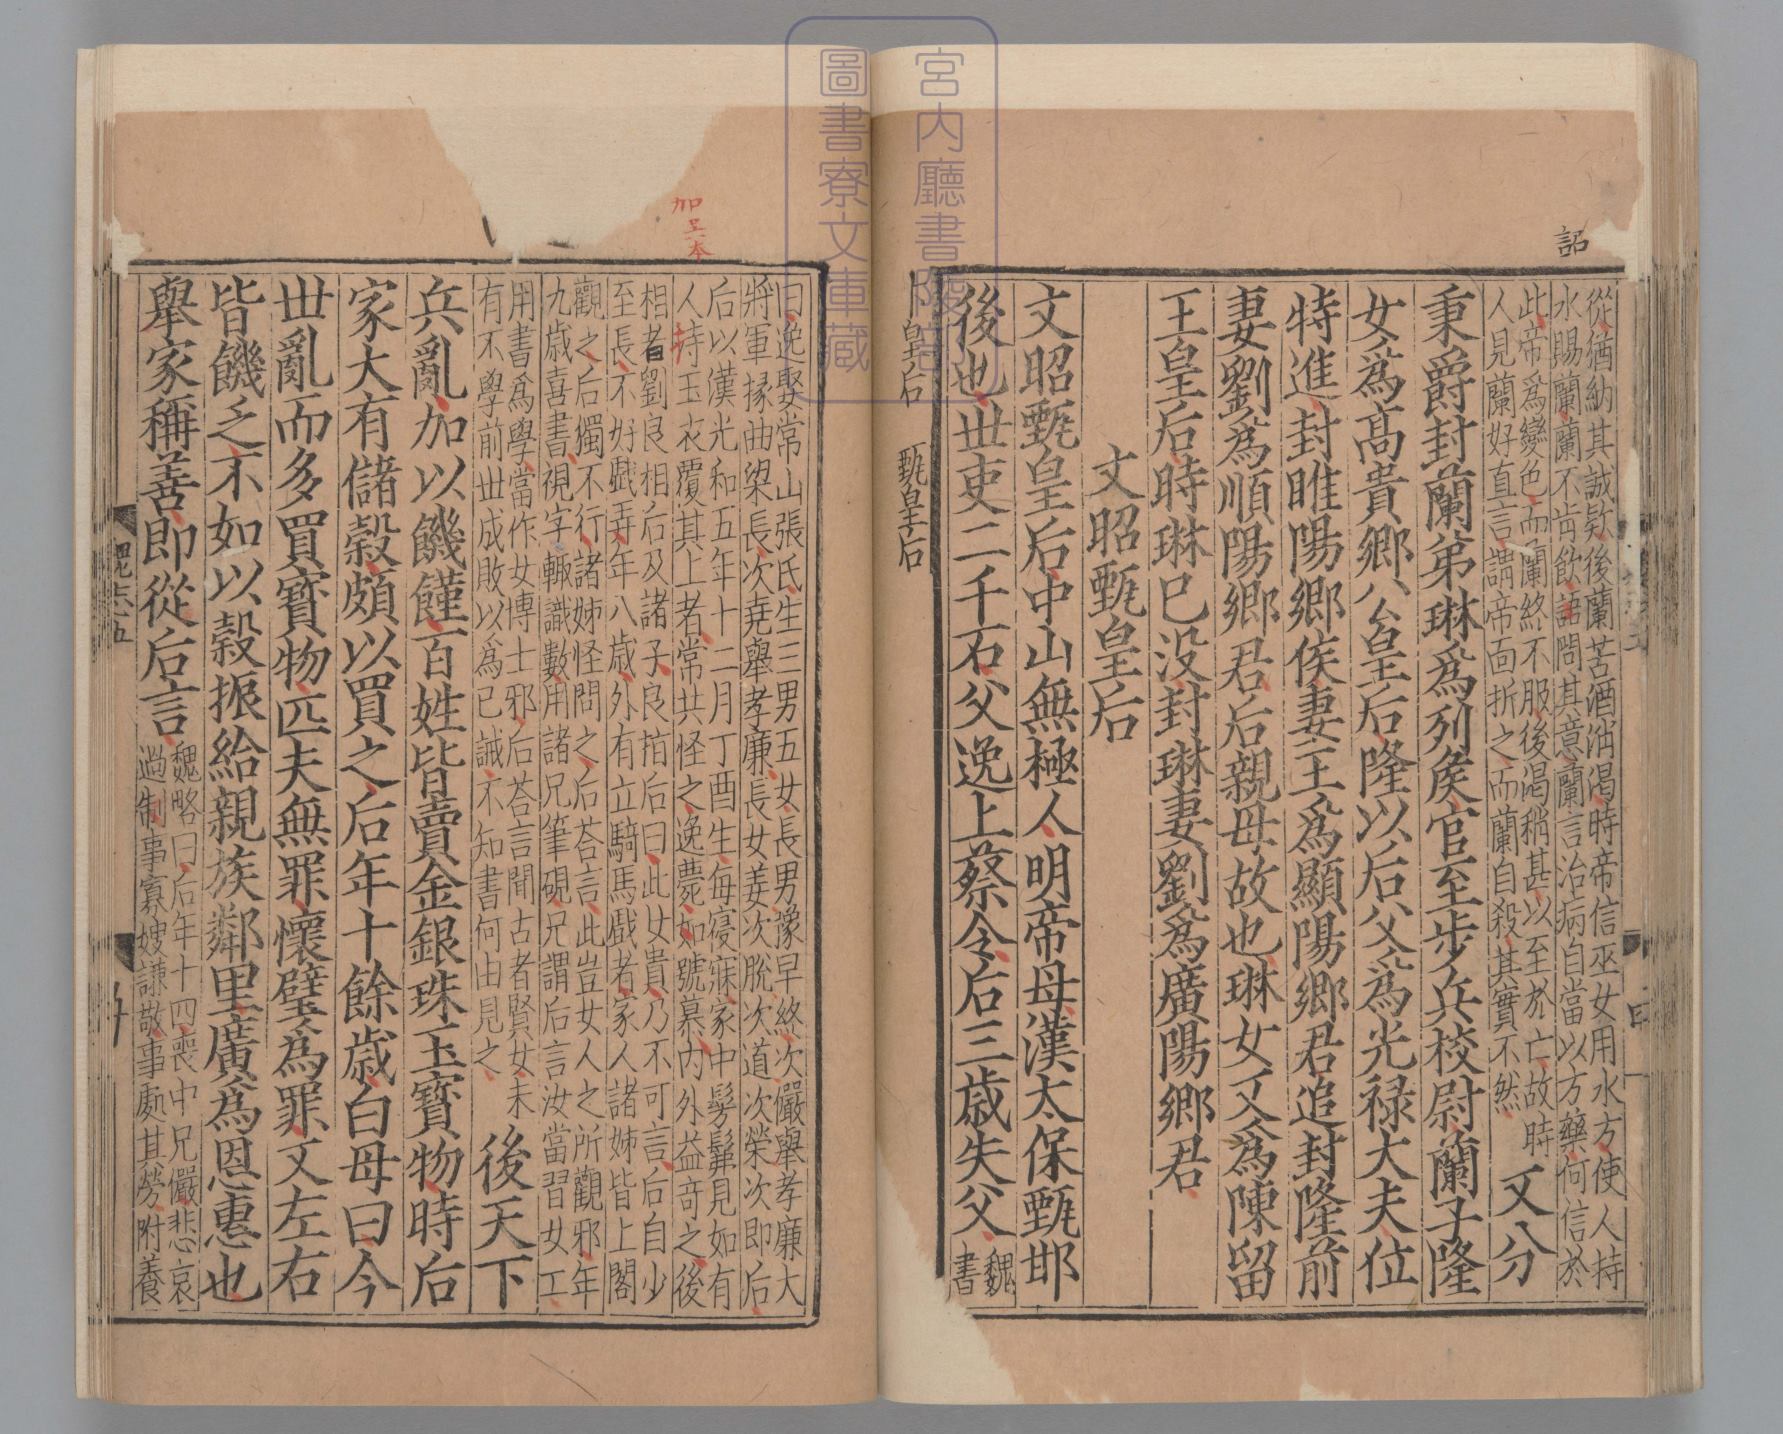 詔
從猶納其誠欵後蘭苦酒消渴時帝信巫女用水方使人持
水賜蘭蘭不肯飲詔問其意蘭言治病自當以方藥何信於
此帝爲變色而蘭終不服後渴稍甚以至於亡故時
人見蘭好直言謂帝面折之而蘭自殺其實不然
又分
秉爵封蘭弟琳爲列侯官至步兵校尉蘭子隆
女爲髙貴鄉公皇后隆以后父爲光禄大夫位
特進封睢陽鄉侯妻王爲顯陽鄉君追封隆前
妻劉爲順陽鄉君后親母故也琳女又爲陳留
王皇后時琳已没封琳妻劉爲廣陽鄉君
文昭甄皇后
文昭甄皇后中山無極人明帝母漢太保甄邯
後也世吏二千石父逸上蔡令后三歳失父
魏
書
皇后 甄皇后
宮内廳書陵部
圖書寮文庫藏
加呉本
曰逸娶常山張氏生三男五女長男豫早終次儼舉孝廉大
將軍掾曲梁長次堯舉孝廉長女姜次脫次道次榮次即后
后以漢光和五年十二月丁酉生每寑寐家中髣髴見如有
人持玉衣覆其上者常共怪之逸薨如號慕内外益竒之後
相者劉良相后及諸子良指后曰此女貴乃不可言后自少
至長不好戲弄年八歳外有立騎馬戲者家人諸姊皆上閣
觀之后獨不行諸姊怪問之后荅言此豈女人之所觀邪年
九歳喜書視字輒識數用諸兄筆硯兄謂后言汝當習女工
用書爲學當作女博士邪后荅言聞古者賢女未
有不學前世成敗以爲已誡不知書何由見之
後天下
兵亂加以饑饉百姓皆賣金銀珠玉寳物時后
家大有儲穀頗以買之后年十餘歳白母曰今
世亂而多買寳物匹夫無罪懷璧爲罪又左右
皆饑乏不如以穀振給親族鄰里廣爲恩惠也
舉家稱善即從后言
魏略曰后年十四喪中兄儼悲哀
過制事寡嫂謙敬事處其勞附養
魏志五